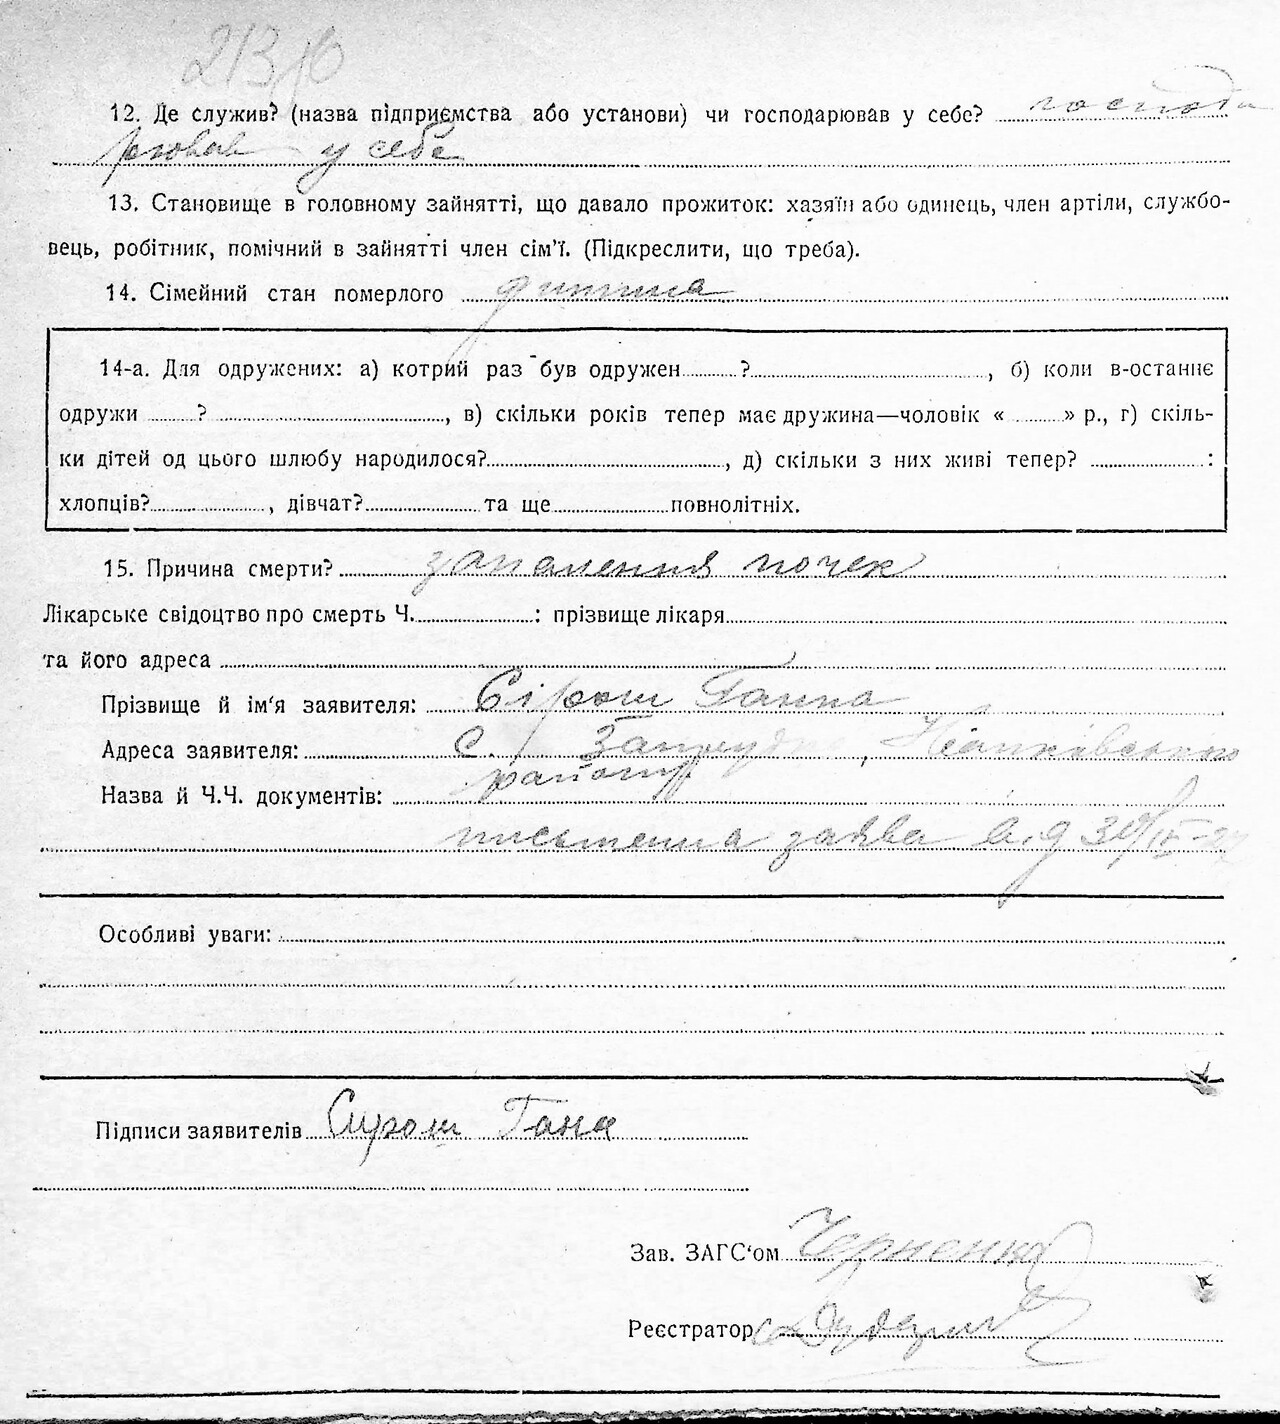 213
12. Де служив? (назва підприємства або установи) чи господарював у себе? господа
рював у себе
13. Становище в головному зайнятті, що давало прожиток: хазяїн або одинець, член артіли, службо-
вець, робітник, помічний в зайнятті член сім'ї. (Підкреслити, що треба).
14. Сімейний стан померлого дитина
14-а. Для одружених: а) котрий раз був одружен ..........?.........., б) коли в-останнє
одружи ..........? .........., в) скільки років тепер має дружина—чоловік « .......... » р., г) скіль-
ки дітей од цього шлюбу народилося?.........., д) скільки з них живі тепер? ..........:
хлопців?.........., дівчат?.......... та ще..........повнолітніх.
15. Причина смерти? запалення почек
Лікарське свідоцтво про смерть Ч...........: прізвище лікаря..........
та його адреса ..........
Прізвище й ім'я заявителя: Сірош Ганна
Адреса заявителя: С.
району
Назва й Ч.Ч. документів:
письменна заява від 30/IV-
Особливі уваги:
Підписи заявителів Сирош Гана
Зав. ЗАГС'ом Черненко
Реєстратор